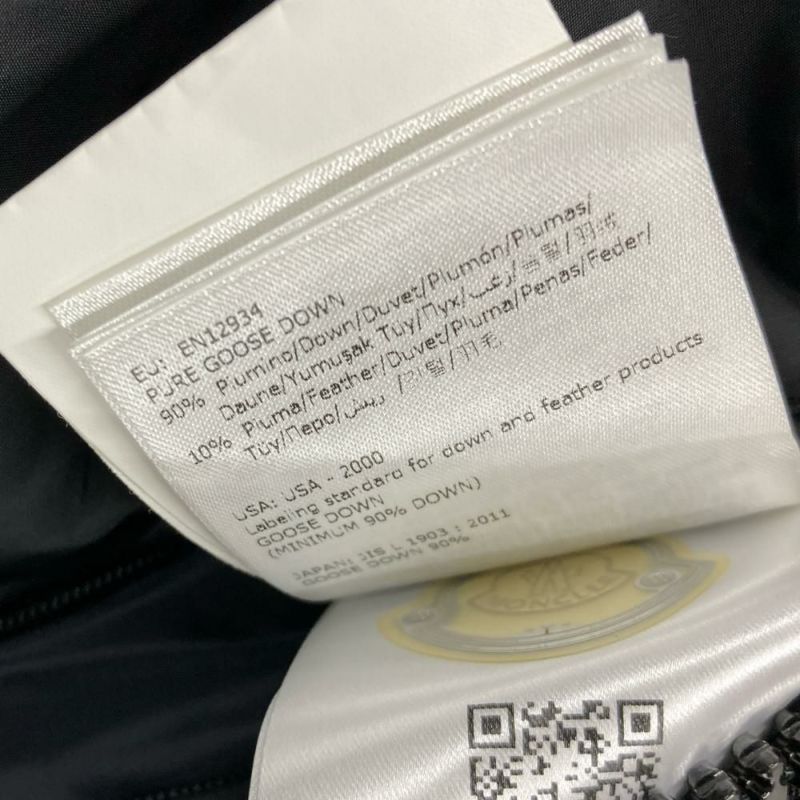 EU: EN12934
PURE GOOSE DOWN
90% Piumino/Down/Duvet/Plumón/Plumas/
Daune/Yumuşak Tüy/Пух/زغب/솜털/羽绒
10% Piuma/Feather/Duvet/Pluma/Penas/Feder/
Tüy/Перо/ريش/깃털/羽毛
USA: USA - 2000
Labeling standard for down and feather products
GOOSE DOWN
(MINIMUM 90% DOWN)
JAPAN: JIS L 1903 : 2011
GOOSE DOWN 90%
MONCLER